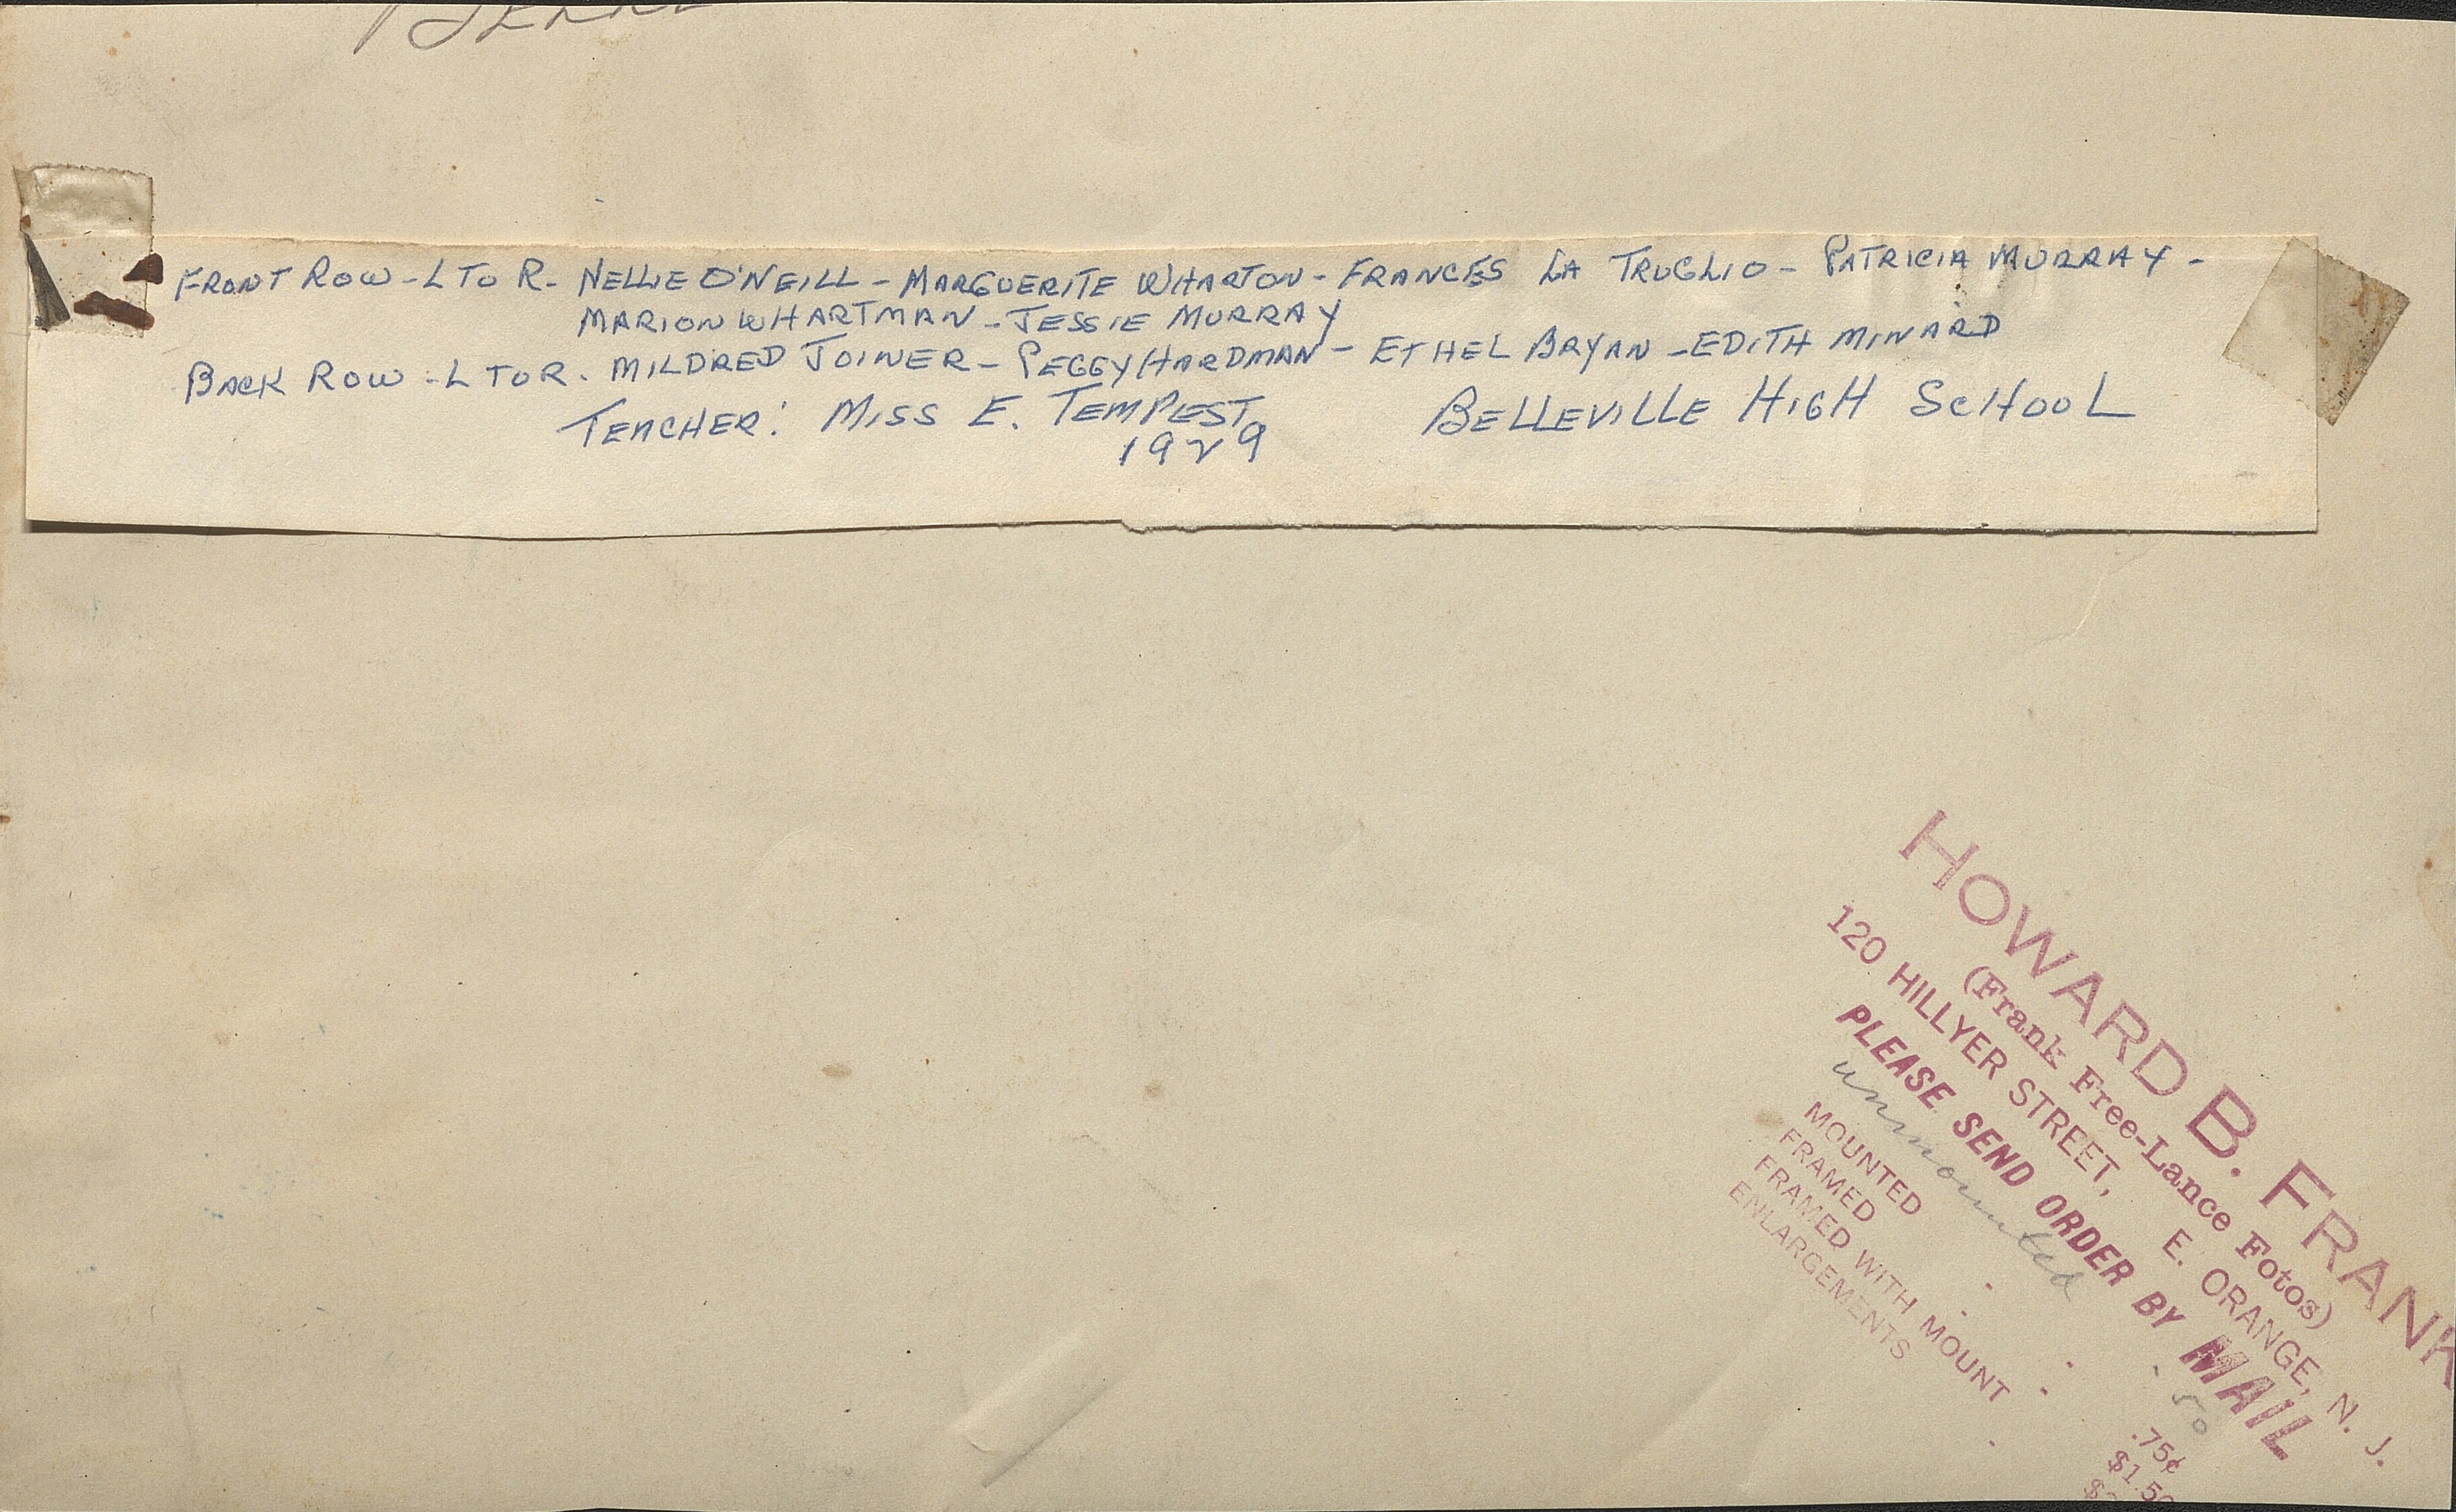 FRONT ROW - L TO R. NELLIE O'NEILL - MARGUERITE WHARTON - FRANCES LA TRUGLIO - PATRICIA MURRAY -
MARION WHARTMAN - JESSIE MURRAY
BACK ROW - L TO R. MILDRED JOINER - PEGGY HARDMAN - ETHEL BRYAN - EDITH MINARD
TEACHER: MISS E. TEMPEST BELLEVILLE HIGH SCHOOL
1929
HOWARD B. FRANK
(Frank Free-Lance Fotos)
120 HILLYER STREET, E. ORANGE, N. J.
PLEASE SEND ORDER BY MAIL
unmounted .50
MOUNTED .75¢
FRAMED $1.50
FRAMED WITH MOUNT
ENLARGEMENTS